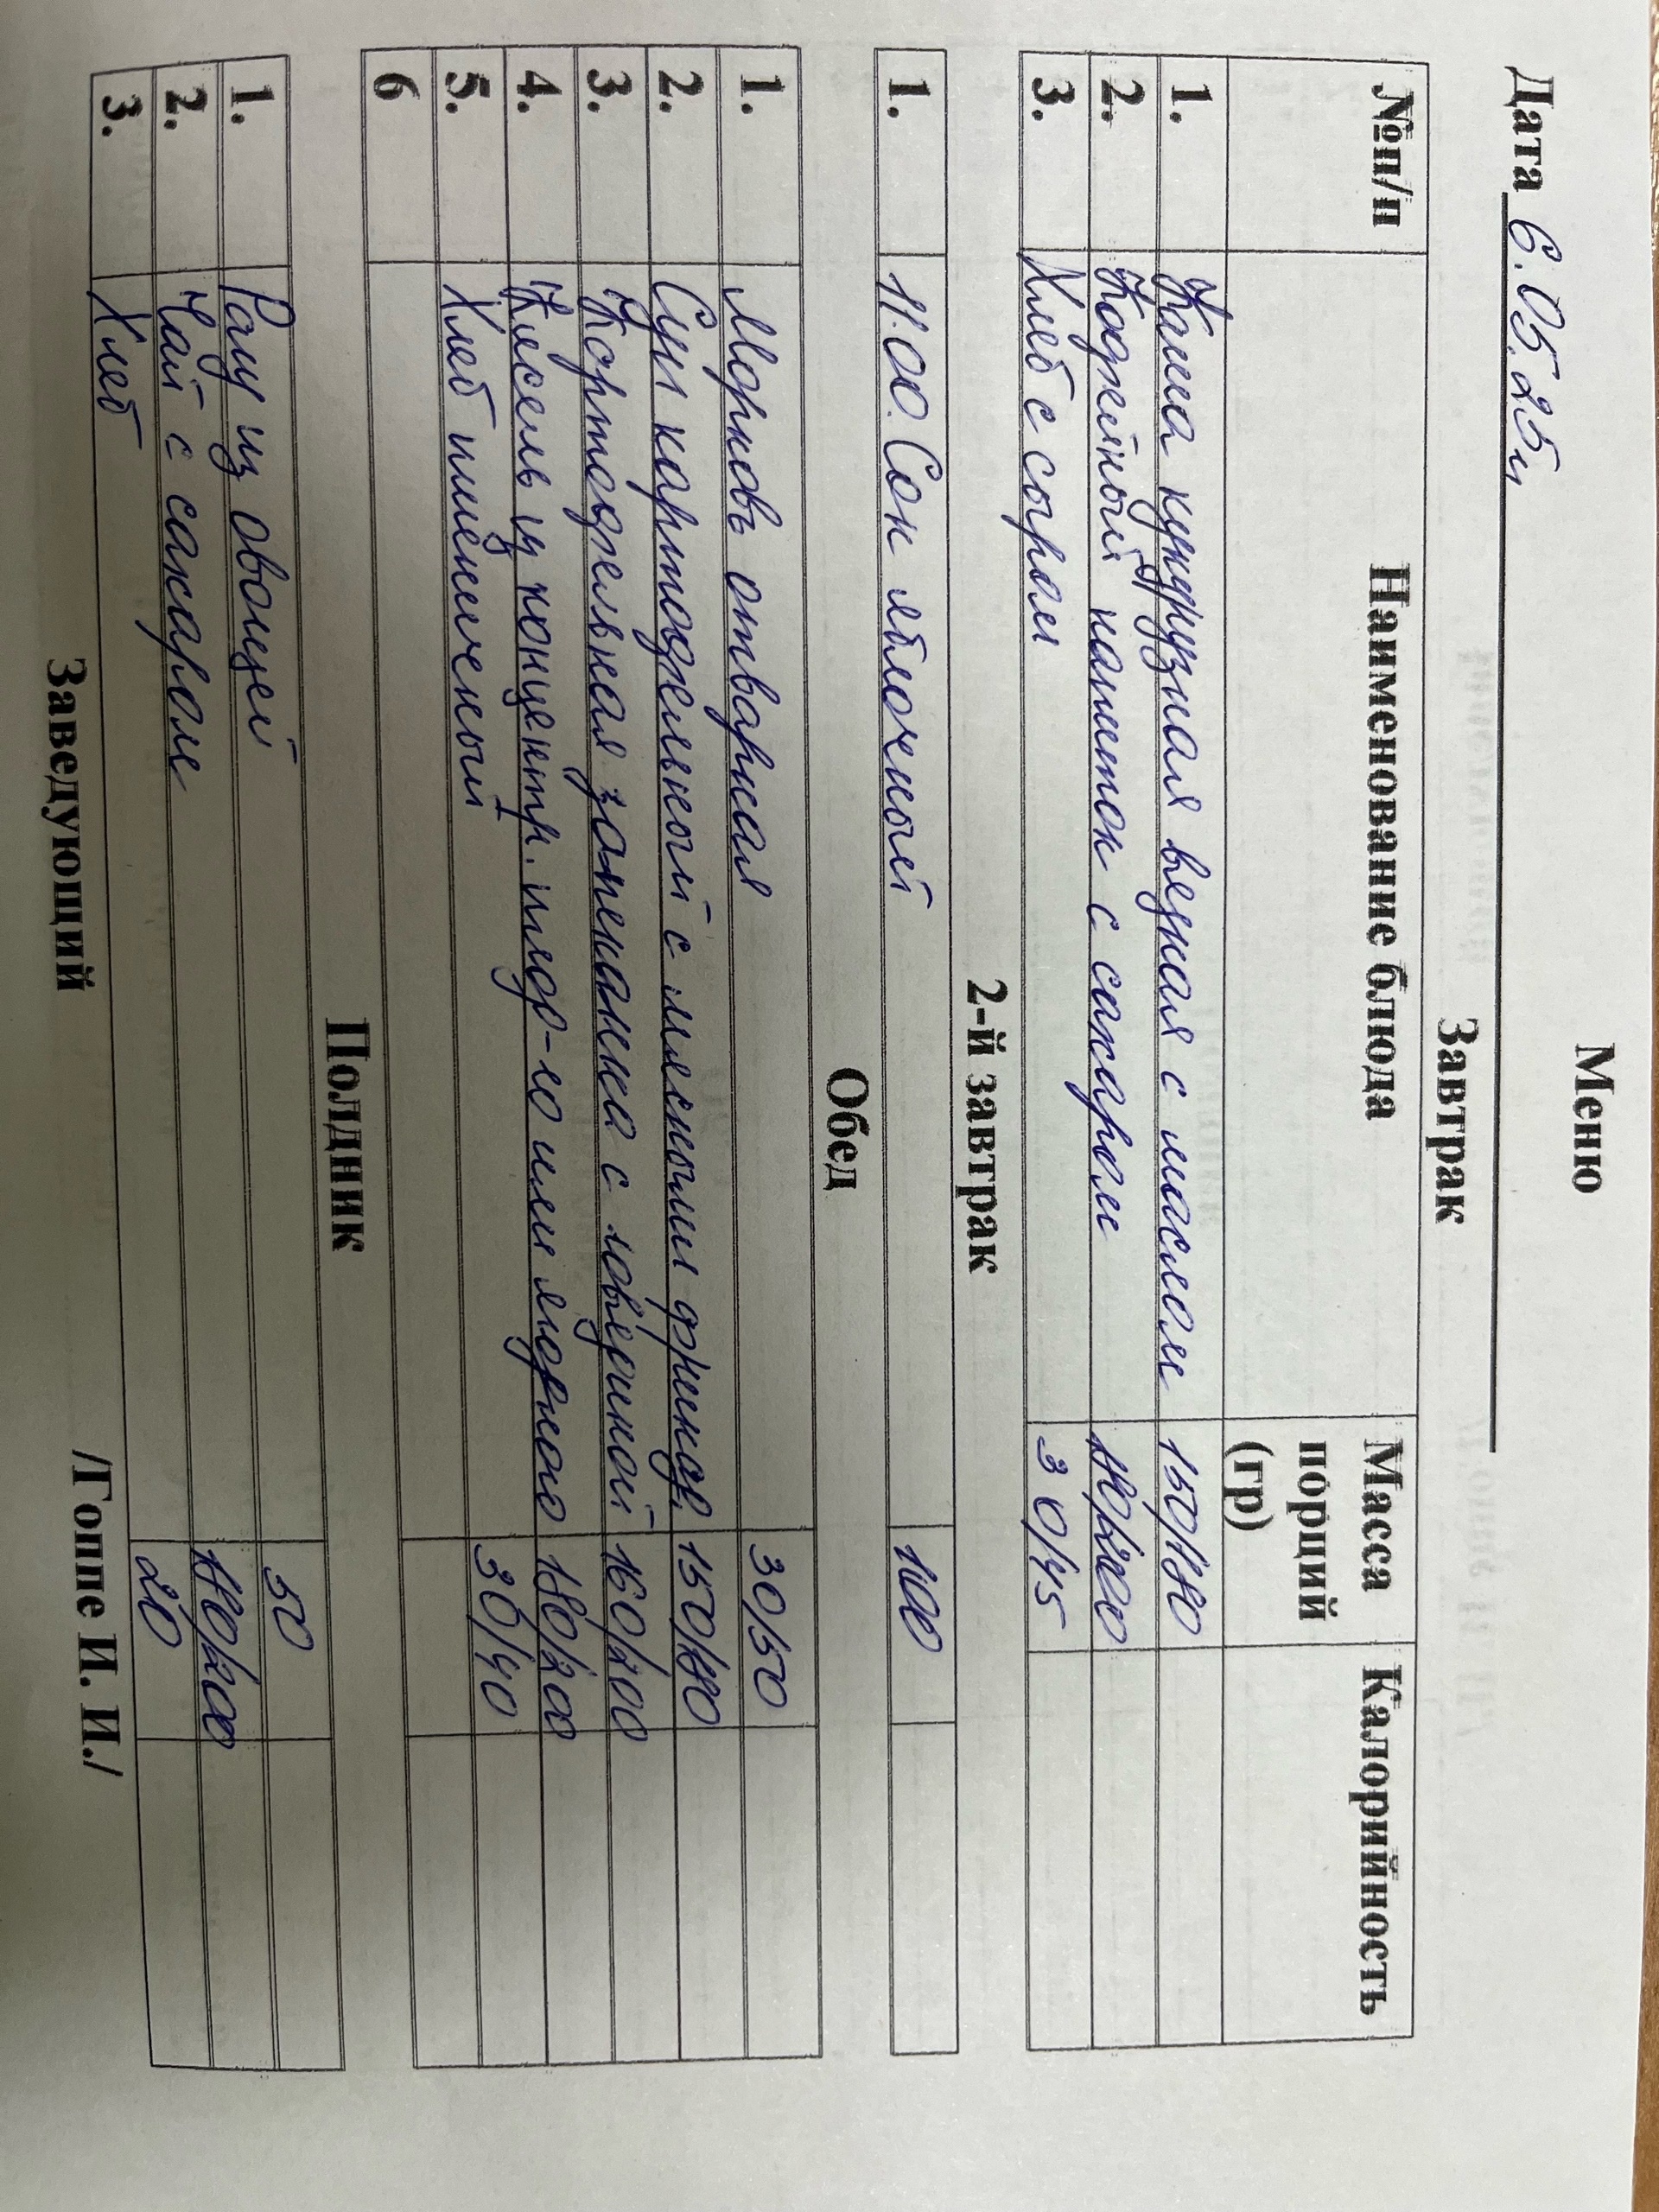 Меню
Дата 6.05.25г
Завтрак
№п/п Наименование блюда Масса порций (гр) Калорийность
1. Каша кукурузная вязкая с маслом 150/180
2. Кофейный напиток с сахаром 180/200
3. Хлеб с сыром 30/45
2-й завтрак
1. 11.00. Сок яблочный 100
Обед
1. Морковь отварная 30/50
2. Суп картофельный с мясными фрикад. 150/180
3. Картофельная запеканка с говядиной 160/200
4. Кисель из концентр. плод-го или ягодного 180/200
5. Хлеб пшеничный 30/40
6
Полдник
1. Рагу из овощей 50
2. Чай с сахаром 180/200
3. Хлеб 20
Заведующий /Гоппе И. И./